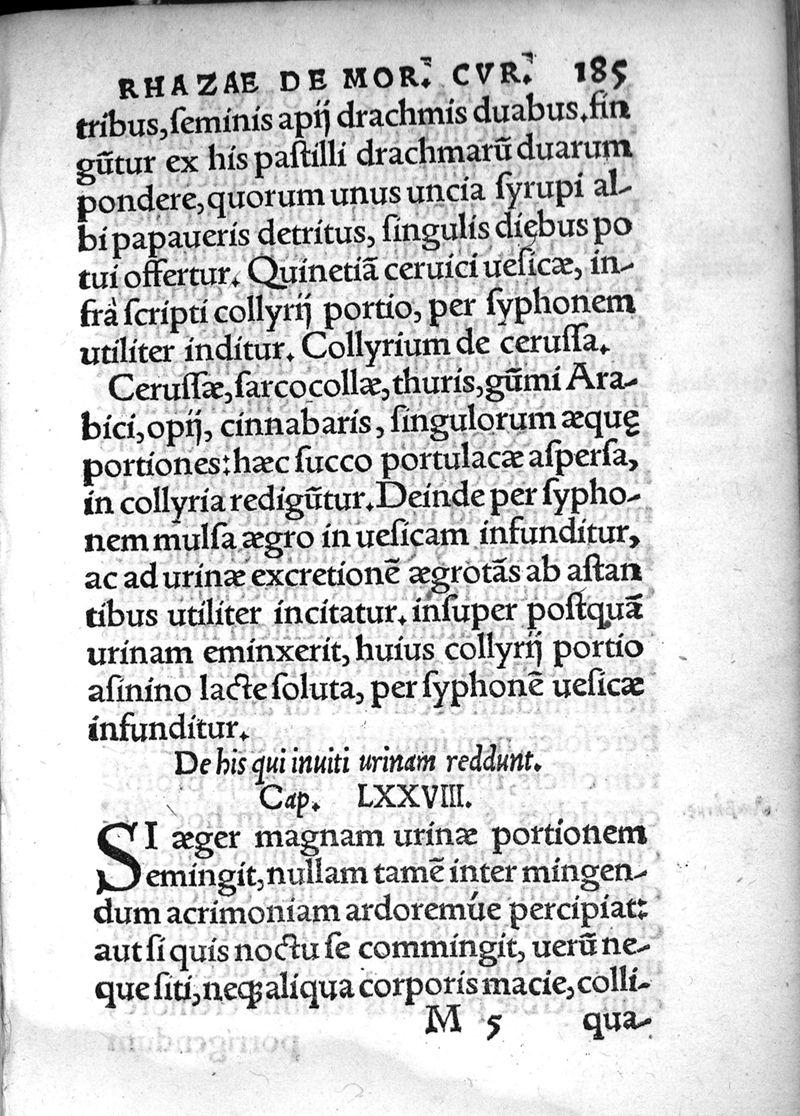 RHAZAE DE MOR. CVR. 185
tribus, ſeminis apij drachmis duabus. fin
gūtur ex his paſtilli drachmarū duarum
pondere, quorum unus uncia ſyrupi al-
bi papaueris detritus, ſingulis diębus po
tui offertur. Quinetiā ceruici ueſicæ, in-
frà ſcripti collyrij portio, per ſyphonem
utiliter inditur. Collyrium de ceruſſa.
Ceruſſæ, ſarcocollæ, thuris, gūmi Ara-
bici, opij, cinnabaris, ſingulorum æquę
portiones: hæc ſucco portulacæ aſperſa,
in collyria redigūtur. Deinde per ſypho-
nem mulſa ægro in ueſicam infunditur,
ac ad urinæ excretionē ægrotās ab aſtan
tibus utiliter incitatur. inſuper poſtquā
urinam eminxerit, huius collyrij portio
aſinino lacte ſoluta, per ſyphonē ueſicæ
infunditur.
De his qui inuiti urinam reddunt.
Cap. LXXVIII.
SI æger magnam urinæ portionem
emingit, nullam tamē inter mingen-
dum acrimoniam ardoremúe percipiat:
aut ſi quis noctu ſe commingit, uerū ne-
que ſiti, neqꝫ aliqua corporis macie, colli-
M 5 qua-